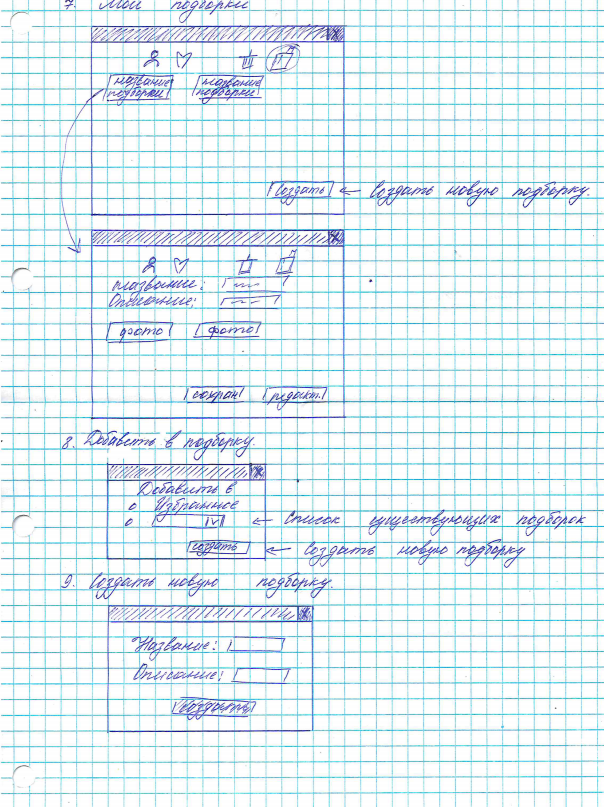 7. Мои подборки
название подборки
название подборки
создать ← создать новую подборку.
название:
Описание:
фото фото
сохран редакт.
8. Добавить в подборку.
Добавить в
о Избранное
о v ← список существующих подборок
создать ← создать новую подборку
9. Создать новую подборку.
Название:
Описание:
создать